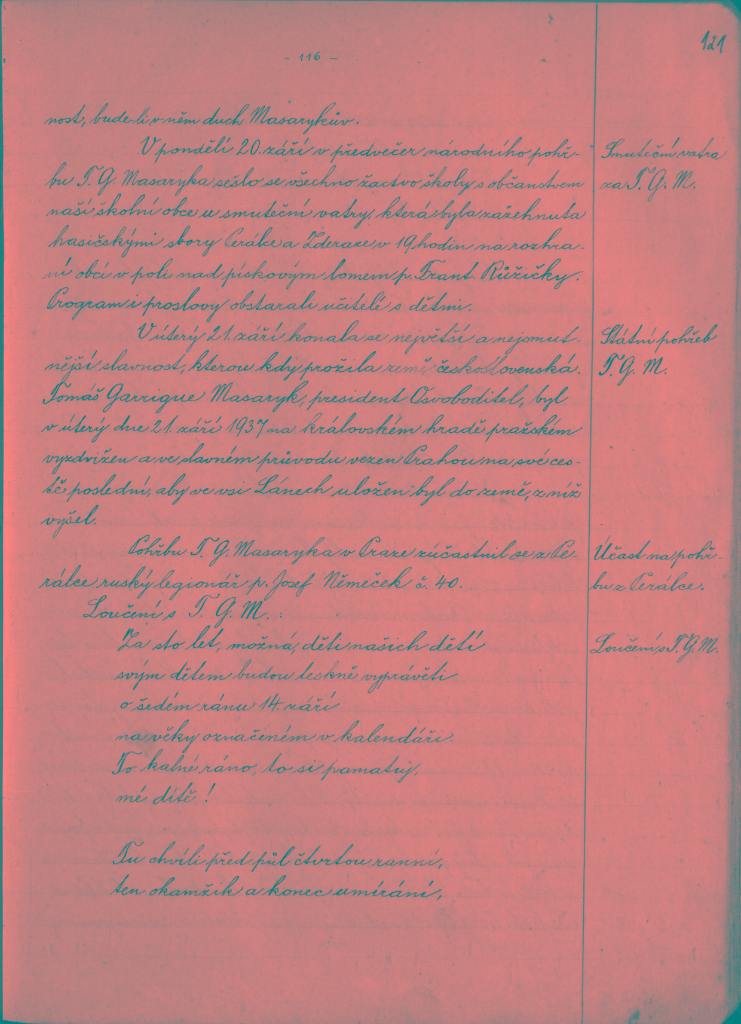 121
- 116 -
nost, bude-li v něm duch Masarykův.
V pondělí 20. září v předvečer národního pohř-
bu T. G. Masaryka sešlo se všechno žactvo školy s občanstvem
naší školní obce u smuteční vatry, která byla zažehnuta
hasičskými sbory Perálce a Zderaze v 19. hodin na rozhra-
ní obcí v poli nad pískovým lomem p. Frant. Růžičky.
Program i proslovy obstarali učitelé s dětmi.
Smuteční vatra
za T. G. M.
V úterý 21. září konala se největší a nejsmut-
nější slavnost, kterou kdy prožila země československá.
Tomáš Garrigue Masaryk, president Osvoboditel, byl
v úterý dne 21. září 1937 na královském hradě pražském
vyzdvižen a ve slavném průvodu vezen Prahou na své ces-
tě poslední, aby ve vsi Lánech uložen byl do země, z níž
vyšel.
Státní pohřeb
T. G. M.
Pohřbu T. G. Masaryka v Praze zúčastnil se z Pe-
rálce ruský legionář p. Josef Němeček č. 40.
Účast na pohř-
bu z Perálce.
Loučení s T. G. M. :
Loučení s T. G. M.
Za sto let, možná, děti našich dětí
svým dětem budou teskně vyprávěti
o šedém ránu 14. září
na věky označeném v kalendáři.
To kalné ráno, to si pamatuj,
mé dítě !
Tu chvíli před půl čtvrtou ranní,
ten okamžik a konec umírání,